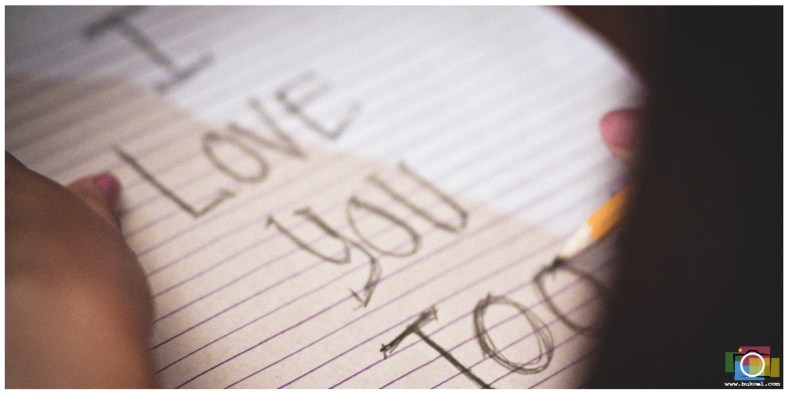 I
LOVE
YOU
TOO
www.bukool.com